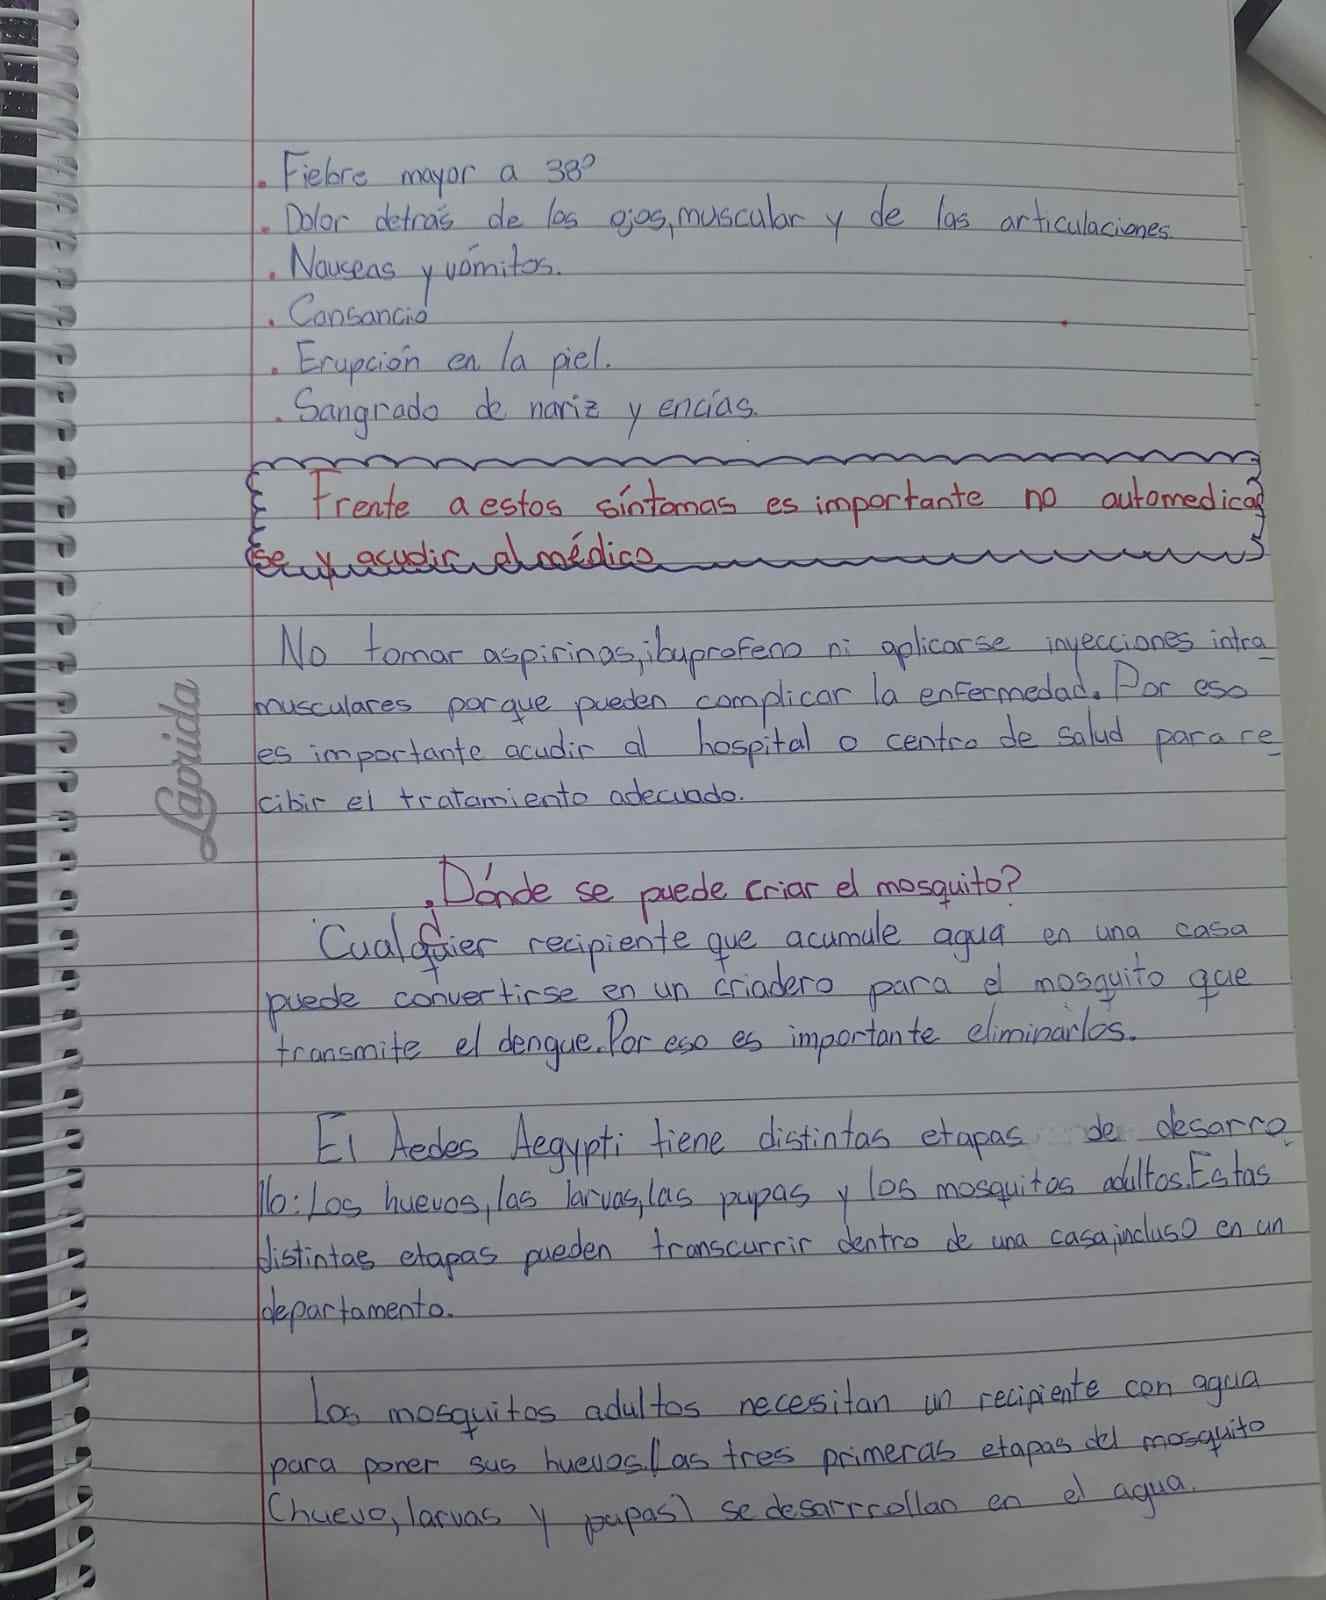 . Fiebre mayor a 38°
. Dolor detrás de los ojos, muscular y de las articulaciones.
. Nauseas y vómitos.
. Cansancio
. Erupción en la piel.
. Sangrado de nariz y encías.
Frente a estos síntomas es importante no automedicar
se y acudir al médico
No tomar aspirinas, ibuprofeno ni aplicarse inyecciones intra_
musculares porque pueden complicar la enfermedad. Por eso
es importante acudir al hospital o centro de salud para re_
cibir el tratamiento adecuado.
Laprida
¿Dónde se puede criar el mosquito?
Cualquier recipiente que acumule agua en una casa
puede convertirse en un criadero para el mosquito que
transmite el dengue. Por eso es importante eliminarlos.
El Aedes Aegypti tiene distintas etapas de desarro_
llo: Los huevos, las larvas, las pupas y los mosquitos adultos. Estas
distintas etapas pueden transcurrir dentro de una casa, incluso en un
departamento.
Los mosquitos adultos necesitan un recipiente con agua
para poner sus huevos. Las tres primeras etapas del mosquito
(huevo, larvas y pupas) se desarrrollan en el agua.